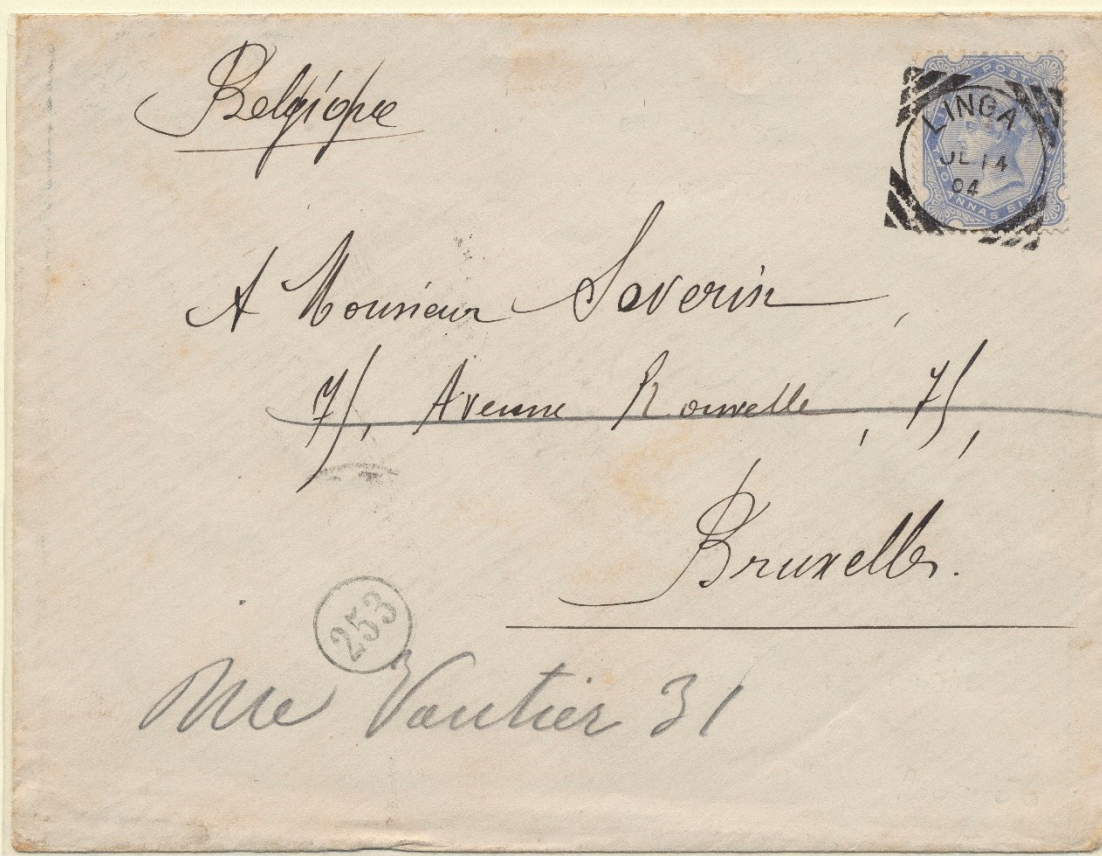 Belgique
POSTA
LINGA
JL 14
04
ANNAS SI
A Monsieur Severin,
7/, Avenue Nouvelle, 7/,
Bruxelles.
253
Rue Vautier 31